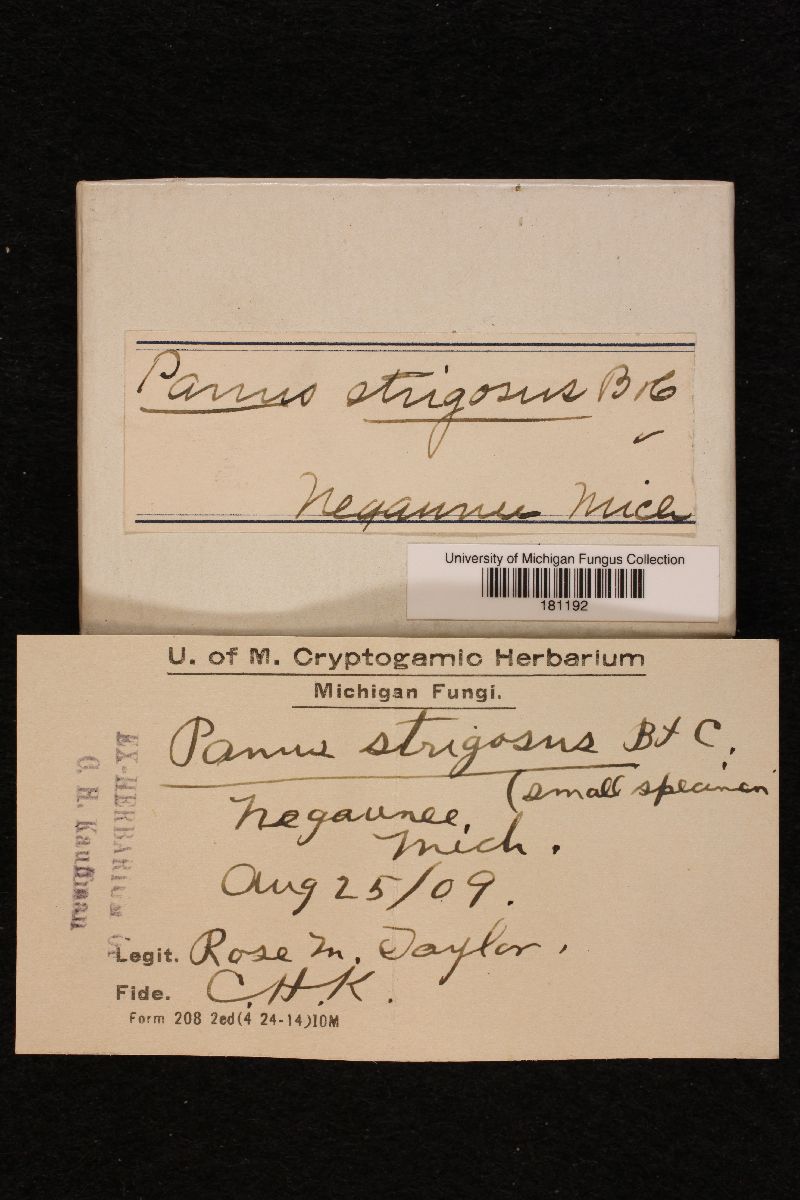 Panus strigosus B&C
✓
Negaunee Mich
University of Michigan Fungus Collection
181192
U. of M. Cryptogamic Herbarium
Michigan Fungi.
Panus strigosus B & C.
(small specimen
Negaunee,
Mich.
Aug 25/09.
Legit. Rose M. Taylor.
Fide. C.H.K.
Form 208 2ed(4 24-14)10M
EX-HERBARIUM OF
C. H. Kauffman